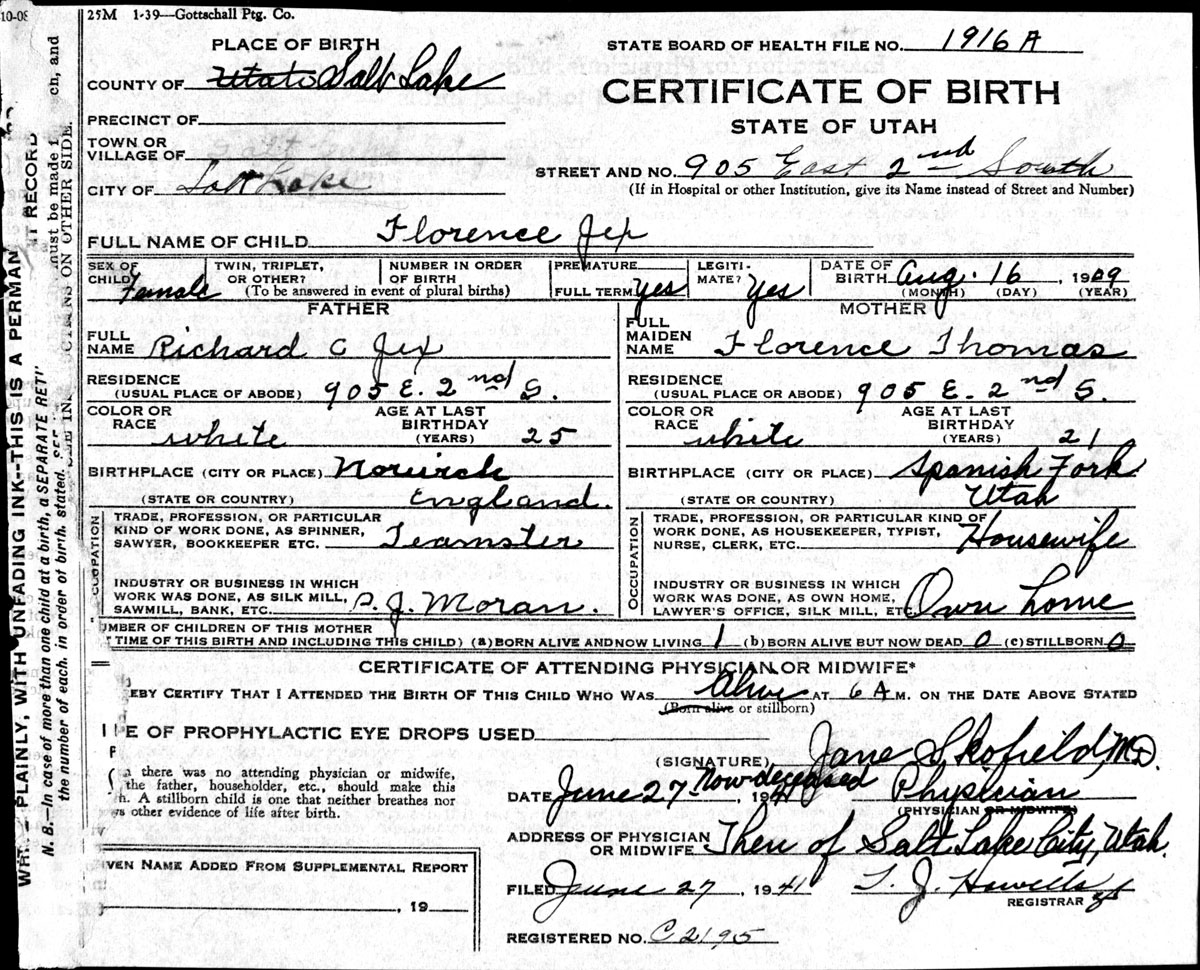 10-08 25M 1-39—Gottschall Ptg. Co.
PLACE OF BIRTH
STATE BOARD OF HEALTH FILE NO. 1916 A
COUNTY OF Utah Salt Lake
CERTIFICATE OF BIRTH
PRECINCT OF
STATE OF UTAH
TOWN OR
VILLAGE OF
STREET AND NO. 905 East 2nd South
CITY OF Salt Lake
(If in Hospital or other Institution, give its Name instead of Street and Number)
FULL NAME OF CHILD Florence Jex
SEX OF CHILD Female TWIN, TRIPLET, OR OTHER? NUMBER IN ORDER OF BIRTH PREMATURE LEGITI-MATE? Yes DATE OF BIRTH Aug. 16, 1909
(To be answered in event of plural births) FULL TERM Yes (MONTH) (DAY) (YEAR)
FATHER
FULL NAME Richard C Jex
RESIDENCE
(USUAL PLACE OF ABODE) 905 E. 2nd S.
COLOR OR RACE white AGE AT LAST BIRTHDAY (YEARS) 25
BIRTHPLACE (CITY OR PLACE) Norwich
(STATE OR COUNTRY) England.
OCCUPATION
TRADE, PROFESSION, OR PARTICULAR
KIND OF WORK DONE, AS SPINNER,
SAWYER, BOOKKEEPER ETC. Teamster
INDUSTRY OR BUSINESS IN WHICH
WORK WAS DONE, AS SILK MILL,
SAWMILL, BANK, ETC. P. J. Moran.
MOTHER
FULL MAIDEN NAME Florence Thomas
RESIDENCE
(USUAL PLACE OR ABODE) 905 E. 2nd S.
COLOR OR RACE white AGE AT LAST BIRTHDAY (YEARS) 21
BIRTHPLACE (CITY OR PLACE) Spanish Fork
(STATE OR COUNTRY) Utah
OCCUPATION
TRADE, PROFESSION, OR PARTICULAR KIND OF
WORK DONE, AS HOUSEKEEPER, TYPIST,
NURSE, CLERK, ETC. Housewife
INDUSTRY OR BUSINESS IN WHICH
WORK WAS DONE, AS OWN HOME,
LAWYER'S OFFICE, SILK MILL, ETC Own home
UMBER OF CHILDREN OF THIS MOTHER
TIME OF THIS BIRTH AND INCLUDING THIS CHILD) (a) BORN ALIVE AND NOW LIVING 1 (b) BORN ALIVE BUT NOW DEAD 0 (c) STILLBORN 0
CERTIFICATE OF ATTENDING PHYSICIAN OR MIDWIFE*
EBY CERTIFY THAT I ATTENDED THE BIRTH OF THIS CHILD WHO WAS Alive AT 6 A M. ON THE DATE ABOVE STATED
(Born alive or stillborn)
E OF PROPHYLACTIC EYE DROPS USED
(SIGNATURE) Jane Skofield, M.D.
Now deceased
there was no attending physician or midwife,
the father, householder, etc., should make this
A stillborn child is one that neither breathes nor
other evidence of life after birth.
DATE June 27, 1941 Physician
(PHYSICIAN OR MIDWIFE)
ADDRESS OF PHYSICIAN
OR MIDWIFE Then of Salt Lake City, Utah.
IVEN NAME ADDED FROM SUPPLEMENTAL REPORT
, 19
FILED June 27, 1941 T. J. Howells
REGISTRAR
REGISTERED NO. C 2195
PLAINLY, WITH UNFADING INK--THIS IS A PERMAN T RECORD
N. B.—In case of more than one child at a birth, a SEPARATE RET must be made ch, and
the number of each. in order of birth. stated. ON OTHER SIDE